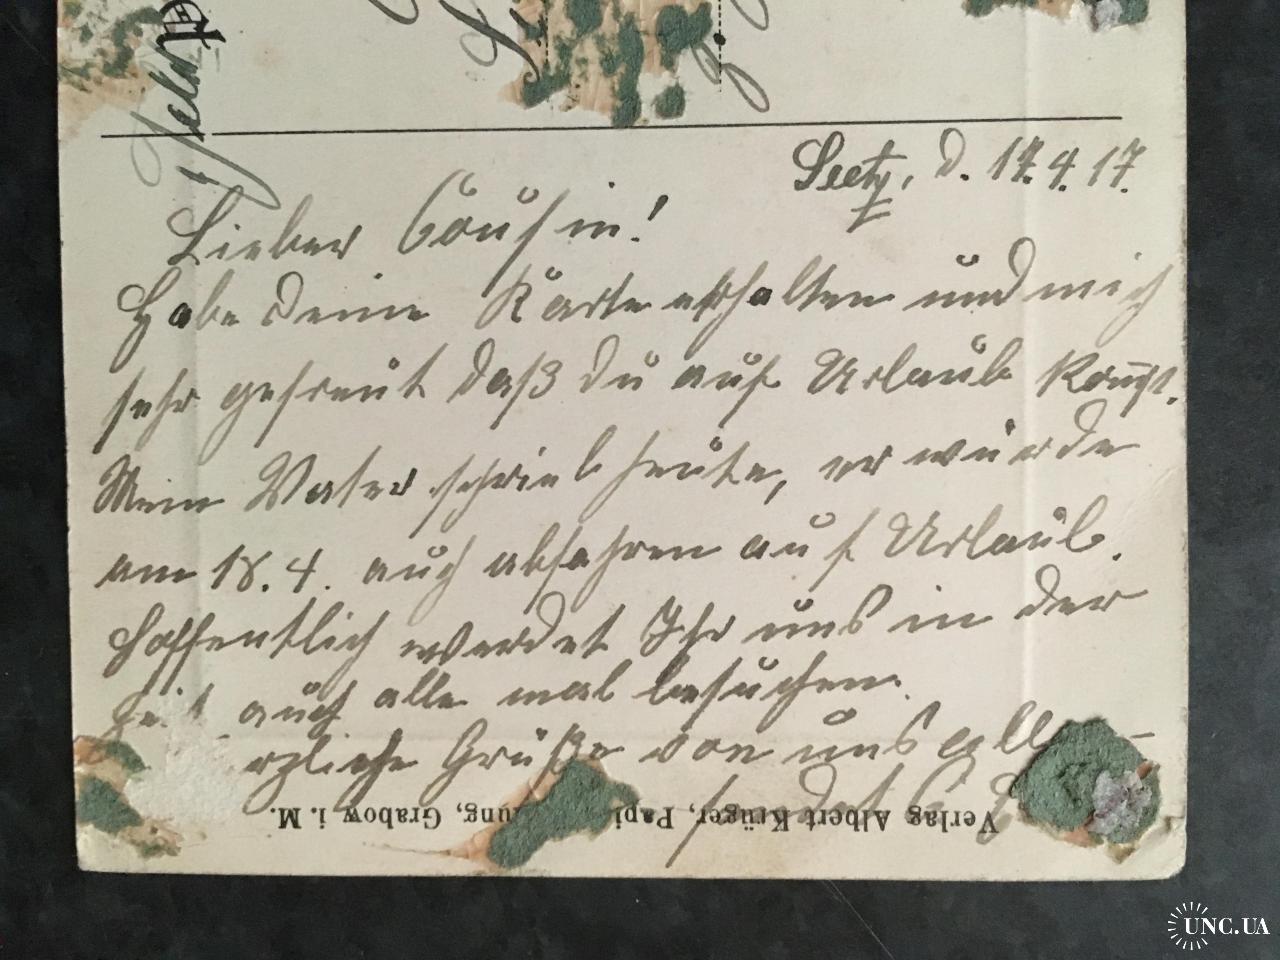 Feld
Seetz, d. 17.4.17.
Lieber Cousin!
Habe deine Karte erhalten und mich
sehr gefreut daß du auf Urlaub komst.
Mein Vater schrieb heute, er würde
am 18.4. auch abfahren auf Urlaub.
Hoffentlich werdet Ihr uns in der
Zeit auch alle mal besuchen.
rzliche Grüße von uns alle
sendet
Verlag Albert Krüger, Papi lung, Grabow i. M.
UNC.UA